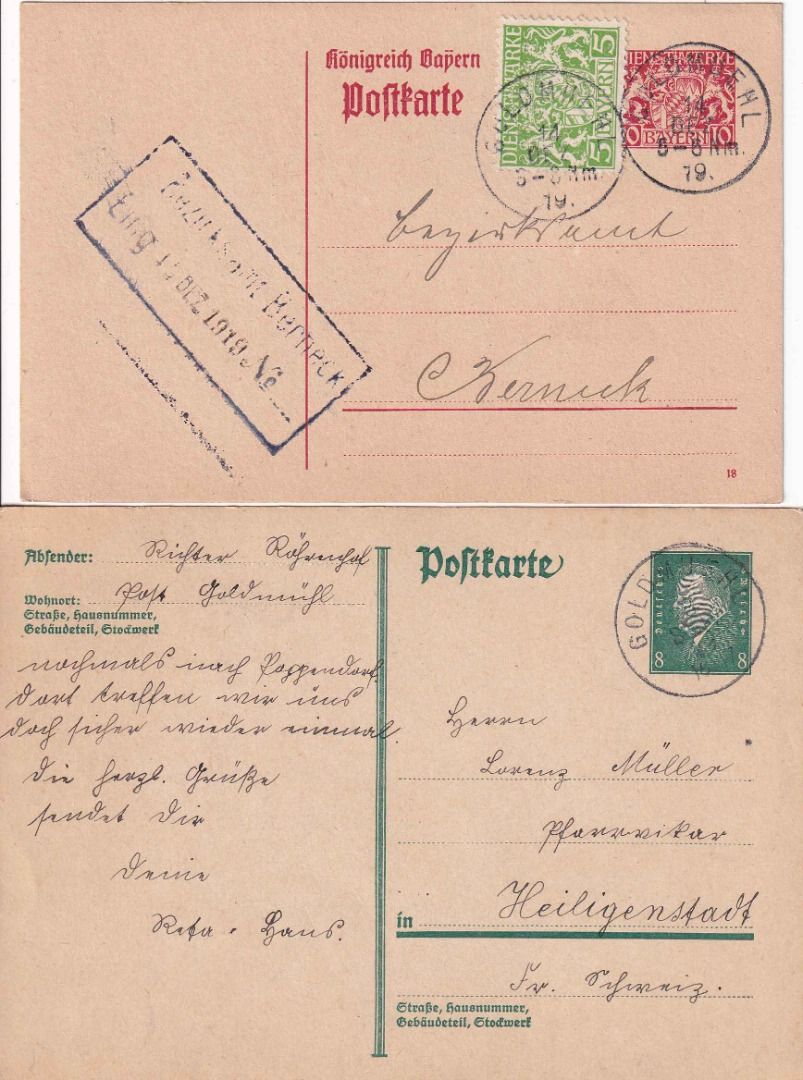 Königreich Bayern
Postkarte
DIENSTMARKE
5 BAYERN 5
GOLDMUEHL
14
DEZ
5-6 Nm.
19.
10 BAYERN 10
GOLDMUEHL
14
DEZ
5-6 Nm.
19.
Bezirksamt Berneck
Eing. DEZ 1919 №
Bezirksamt
Berneck
18
Absender: Richter Röhrenhof
Wohnort: Post Goldmühl
Straße, Hausnummer,
Gebäudeteil, Stockwerk
nochmals nach Poppendorf.
Dort treffen wir uns
doch sicher wieder einmal.
Die herzl. Grüße
sendet Dir
Deine
Hans.
Postkarte
Deutsches Reich
8 8
GOLDMUEHL
Herrn
Lorenz Müller
Pfarrvikar
in Heiligenstadt
Fr. Schweiz.
Straße, Hausnummer,
Gebäudeteil, Stockwerk